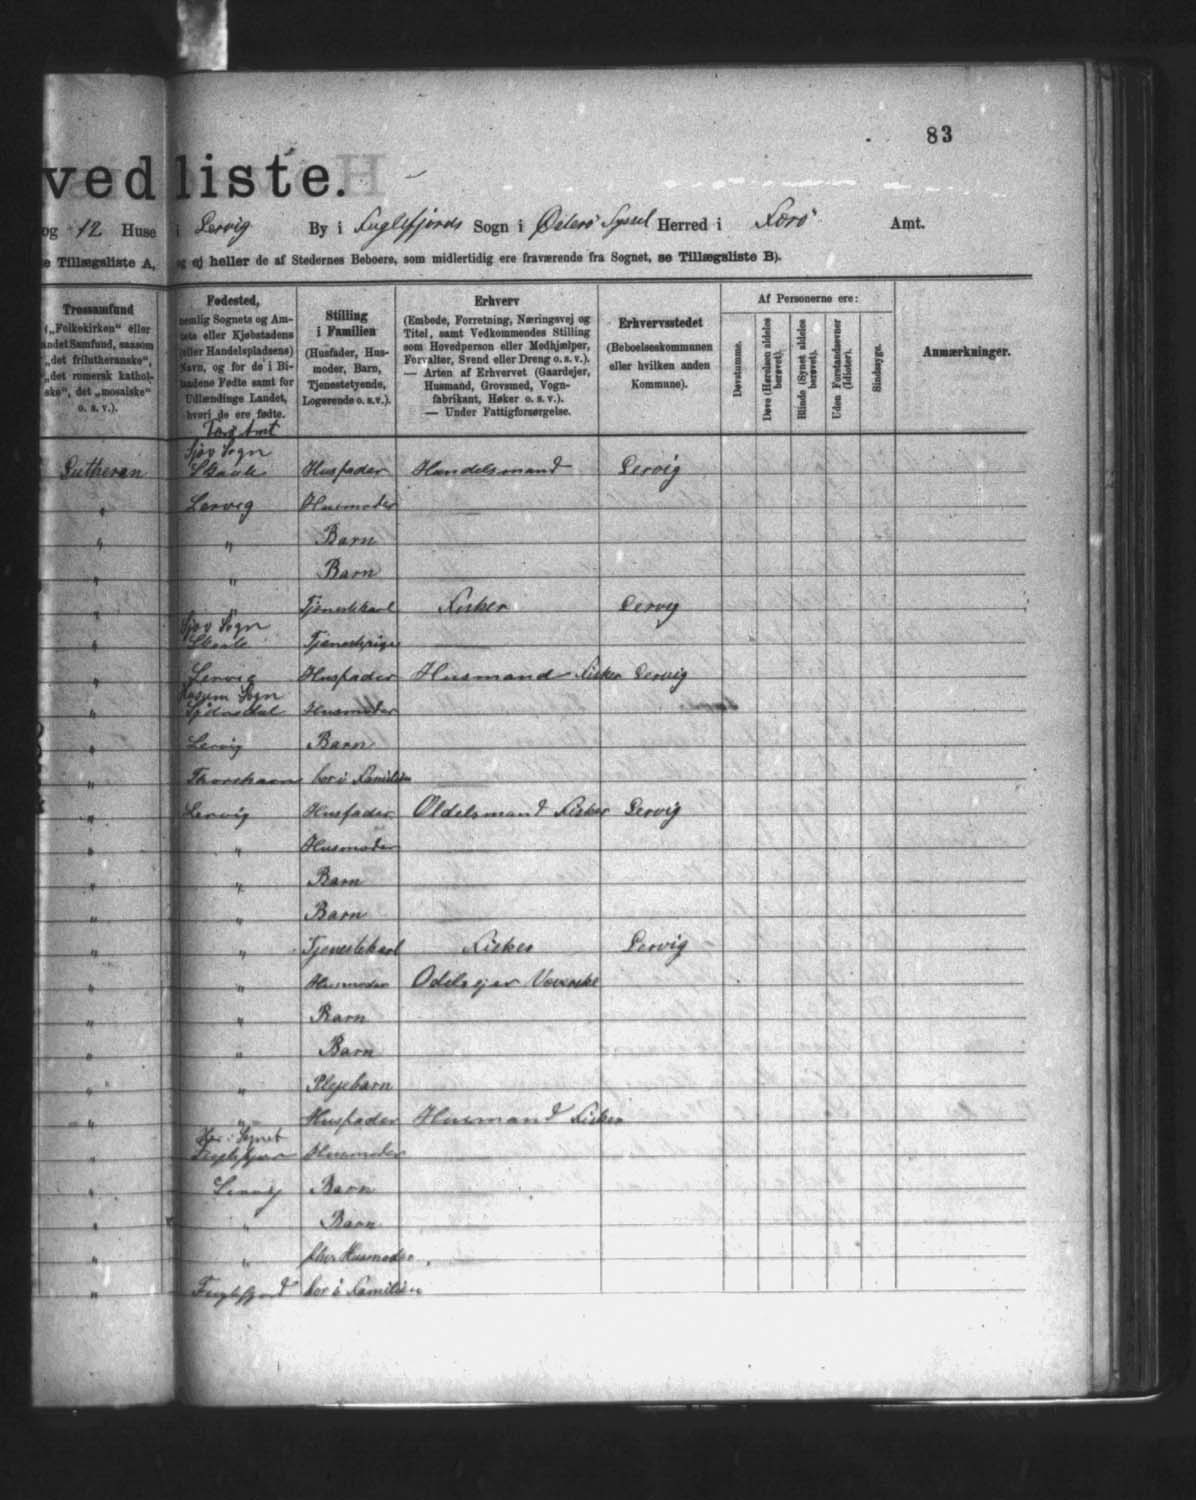 83
vedliste.
og 12 Huse i Lervig By i Fuglefjords Sogn i Østerø Syssel Herred i Færø Amt.
e Tillægsliste A, og ej heller de af Stedernes Beboere, som midlertidig ere fraværende fra Sognet, se Tillægsliste B).
Trossamfund
(„Folkekirken“ eller
andet Samfund, saasom
„det frilutheranske“,
„det romersk kathol-
ske“, det „mosaiske“
o. s. v.).
Fødested,
nemlig Sognets og Am-
tets eller Kjøbstadens
(eller Handelspladsens)
Navn, og for de i Bi-
landene Fødte samt for
Udlændinge Landet,
hvori de ere fødte.
Stilling
i Familien
(Husfader, Hus-
moder, Barn,
Tjenestetyende,
Logerende o. s. v.).
Erhverv
(Embede, Forretning, Næringsvej og
Titel, samt Vedkommendes Stilling
som Hovedperson eller Medhjælper,
Forvalter, Svend eller Dreng o. s. v.).
— Arten af Erhvervet (Gaardejer,
Husmand, Grovsmed, Vogn-
fabrikant, Høker o. s. v.).
— Under Fattigforsørgelse.
Erhvervsstedet
(Beboelseskommunen
eller hvilken anden
Kommune).
Af Personerne ere:
Døvstumme.
Døve (Hørelsen aldeles
berøvet).
Blinde (Synet aldeles
berøvet).
Uden Forstandsevner
(Idioter).
Sindssyge.
Anmærkninger.
Amt
Sjov Sogn
Lutheran Skaale Husfader Handelsmand Lervig
" Lervig Husmoder
" " Barn
" " Barn
" " Tjenestekarl Fisker Lervig
Sjov Sogn
" Skaale Tjenestepige
" Lervig Husfader Husmand Fisker Lervig
Husum Sogn
" Husmoder
" Lervig Barn
" Thorshavn bor i Familien
" Lervig Husfader Oldelsmand Fisker Lervig
" " Husmoder
" " Barn
" " Barn
" " Tjenestekarl Fisker Lervig
" " Husmoder Odelsejer Væverske
" " Barn
" " Barn
" " Plejebarn
" " Husfader Husmand Fisker
Her i Sognet
" Fuglefjord Husmoder
" Lervig Barn
" " Barn
" " Husmoder
" Fuglefjord bor i Familien